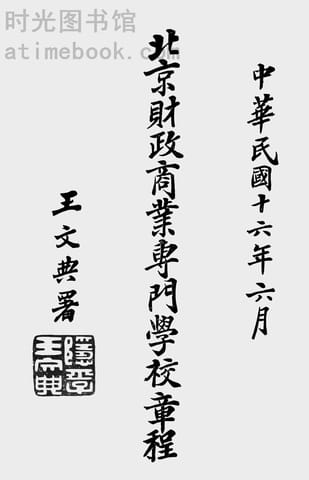 时光图书馆
atimebook.com
中華民國十六年六月
北京財政商業專門學校章程
王文典署